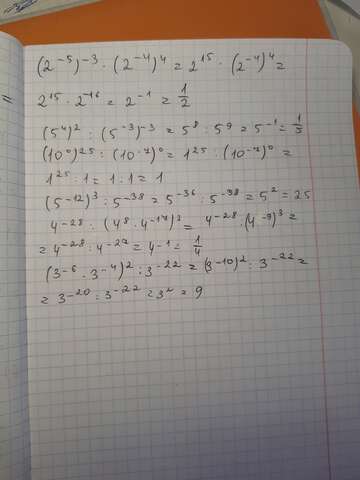 (2⁻⁵)⁻³ · (2⁻⁴)⁴ = 2¹⁵ · (2⁻⁴)⁴ =
2¹⁵ · 2⁻¹⁶ = 2⁻¹ = 1/2
(5⁴)² : (5⁻³)⁻³ = 5⁸ : 5⁹ = 5⁻¹ = 1/5
(10⁰)²⁵ : (10⁻⁷)⁰ = 1²⁵ : (10⁻⁷)⁰ =
1²⁵ : 1 = 1 : 1 = 1
(5⁻¹²)³ : 5⁻³⁸ = 5⁻³⁶ : 5⁻³⁸ = 5² = 25
4⁻²⁸ : (4⁸ · 4⁻¹⁷)³ = 4⁻²⁸ : (4⁻⁹)³ =
= 4⁻²⁸ : 4⁻²⁷ = 4⁻¹ = 1/4
(3⁻⁶ · 3⁻⁴)² : 3⁻²² = (3⁻¹⁰)² : 3⁻²² =
= 3⁻²⁰ : 3⁻²² = 3² = 9